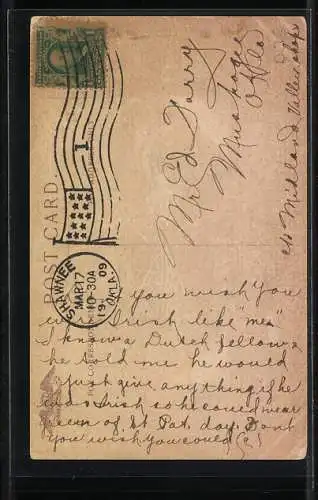 POST CARD.
SHAWNEE
MAR 17
10-30A
19 09
OKLA.
1
Mr Ed Farry
Muskogee
Okla
c/o Midland Valley shop
you wish you
Irish like "me"
I know a Dutch fellow &
he told me he would
just give anything if he
was Irish so he could wear
green of St Pat. day. Dont
you wish you could